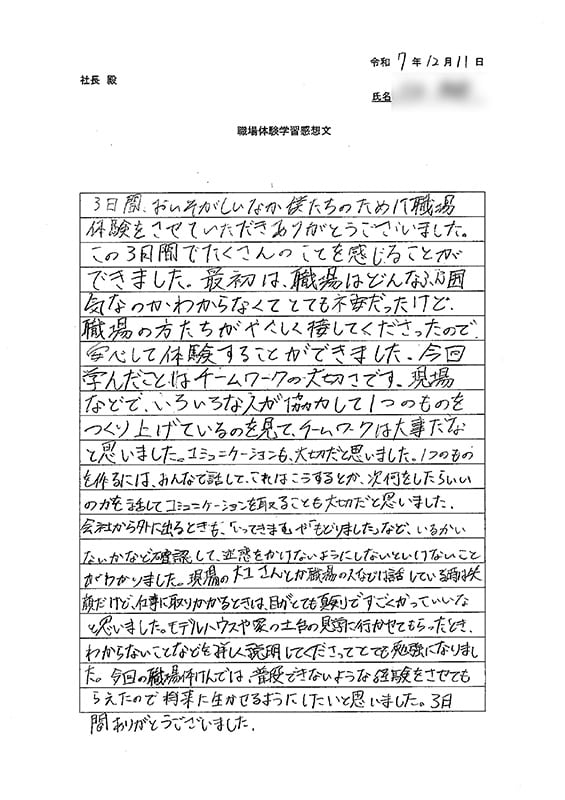 令和 7 年 12 月 11 日
社長 殿
氏名
職場体験学習感想文
3日間、おいそがしいなか僕たちのために職場
体験をさせていただきありがとうございました。
この3日間でたくさんのことを感じることが
できました。最初は、職場はどんなふん囲
気なのかわからなくてとても不安だったけど、
職場の方たちがやさしく接してくださったので、
安心して体験することができました。今回
学んだことはチームワークの大切さです。現場
などで、いろいろな人が協力して1つのものを
つくり上げているのを見て、チームワークは大事だな
と思いました。コミュニケーションも、大切だと思いました。1つのもの
を作るには、みんなで話して、これはこうするとか、次何をしたらいい
のかを話してコミュニケーションを取ることも大切だと思いました。
会社から外に出るときも、「いってきます」や「もどりました」など、いるかい
ないかなど確認して、迷惑をかけないようにしないといけないこと
がわかりました。現場の大工さんとか職場の人などは話している時は笑
顔だけど、仕事に取りかかるときは、目がとても真剣ですごくかっていいな
と思いました。モデルハウスや家の土台の見学に行かせてもらったとき、
わからないことなどを詳しく説明してくださってとても勉強になりまし
た。今回の職場体けんでは、普段できないような経験をさせても
らえたので将来に生かせるようにしたいと思いました。3日
間ありがとうございました。